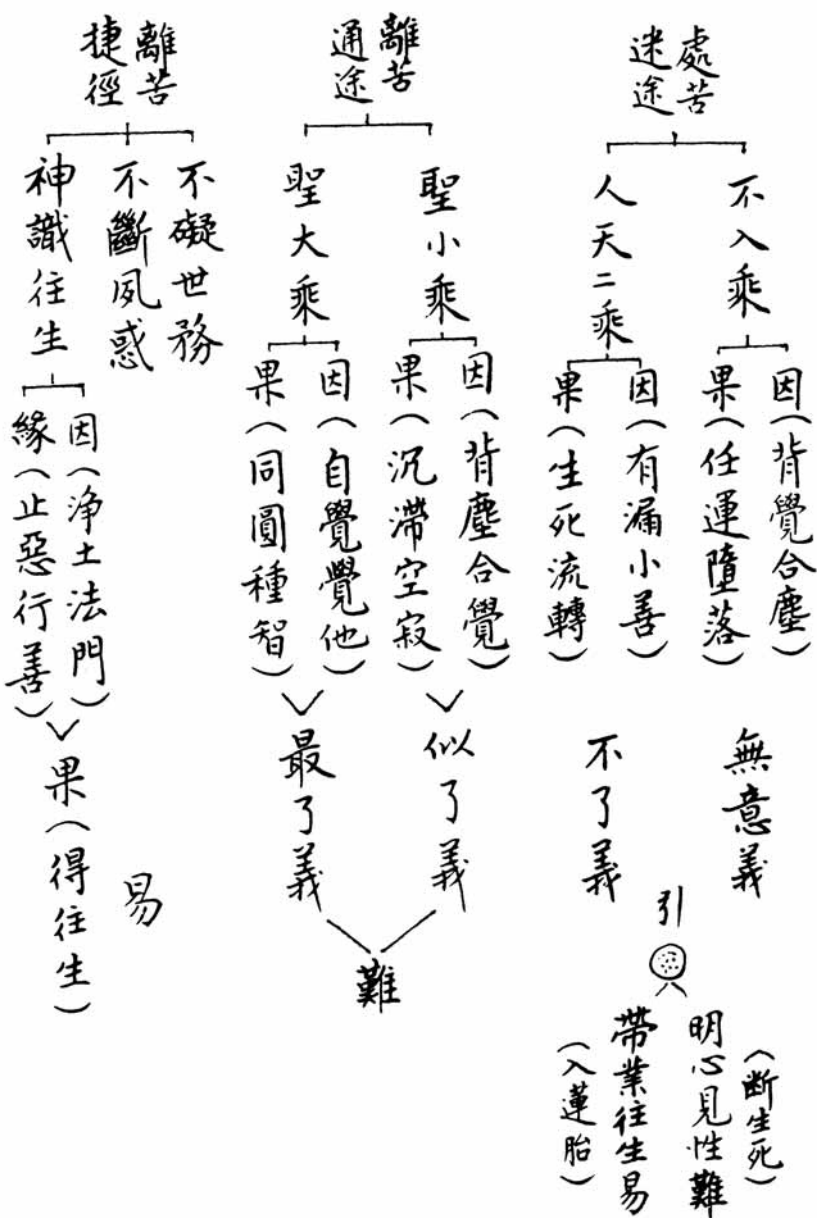 處苦
迷途
不入乘
因(背覺合塵)
果(任運墮落)
無意義
人天二乘
因(有漏小善)
果(生死流轉)
不了義
引
(斷生死)
明心見性難
帶業往生易
(入蓮胎)
離苦
通途
聖小乘
因(背塵合覺)
果(沉滯空寂)
似了義
聖大乘
因(自覺覺他)
果(同圓種智)
最了義
難
離苦
捷徑
不礙世務
不斷夙惑
神識往生
因(淨土法門)
緣(止惡行善)
果(得往生)
易